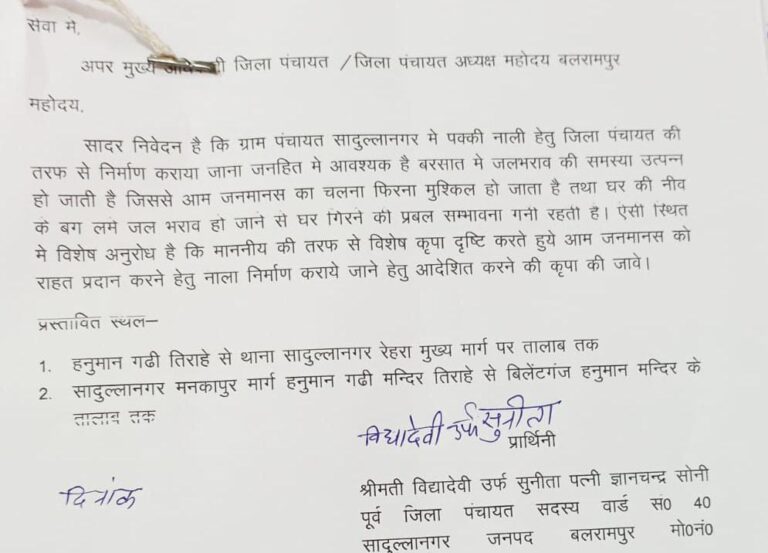 सेवा मे,
अपर मुख्य जिला पंचायत / जिला पंचायत अध्यक्ष महोदय बलरामपुर
महोदय,
सादर निवेदन है कि ग्राम पंचायत सादुल्लानगर मे पक्की नाली हेतु जिला पंचायत की
तरफ से निर्माण कराया जाना जनहित मे आवश्यक है बरसात मे जलभराव की समस्या उत्पन्न
हो जाती है जिससे आम जनमानस का चलना फिरना मुश्किल हो जाता है तथा घर की नीव
के बग लमे जल भराव हो जाने से घर गिरने की प्रबल सम्भावना गनी रहती है। ऐसी स्थित
मे विशेष अनुरोध है कि माननीय की तरफ से विशेष कृपा दृष्टि करते हुये आम जनमानस को
राहत प्रदान करने हेतु नाला निर्माण कराये जाने हेतु आदेशित करने की कृपा की जावे।
प्रस्तावित स्थल–
1. हनुमान गढी तिराहे से थाना सादुल्लानगर रेहरा मुख्य मार्ग पर तालाब तक
2. सादुल्लानगर मनकापुर मार्ग हनुमान गढी मन्दिर तिराहे से बिलेंटगंज हनुमान मन्दिर के
तालाब तक
विद्यादेवी उर्फ सुनीता
प्रार्थिनी
दिनांक
श्रीमती विद्यादेवी उर्फ सुनीता पत्नी ज्ञानचन्द्र सोनी
पूर्व जिला पंचायत सदस्य वार्ड सं0 40
सादुल्लानगर जनपद बलरामपुर मो0नं0